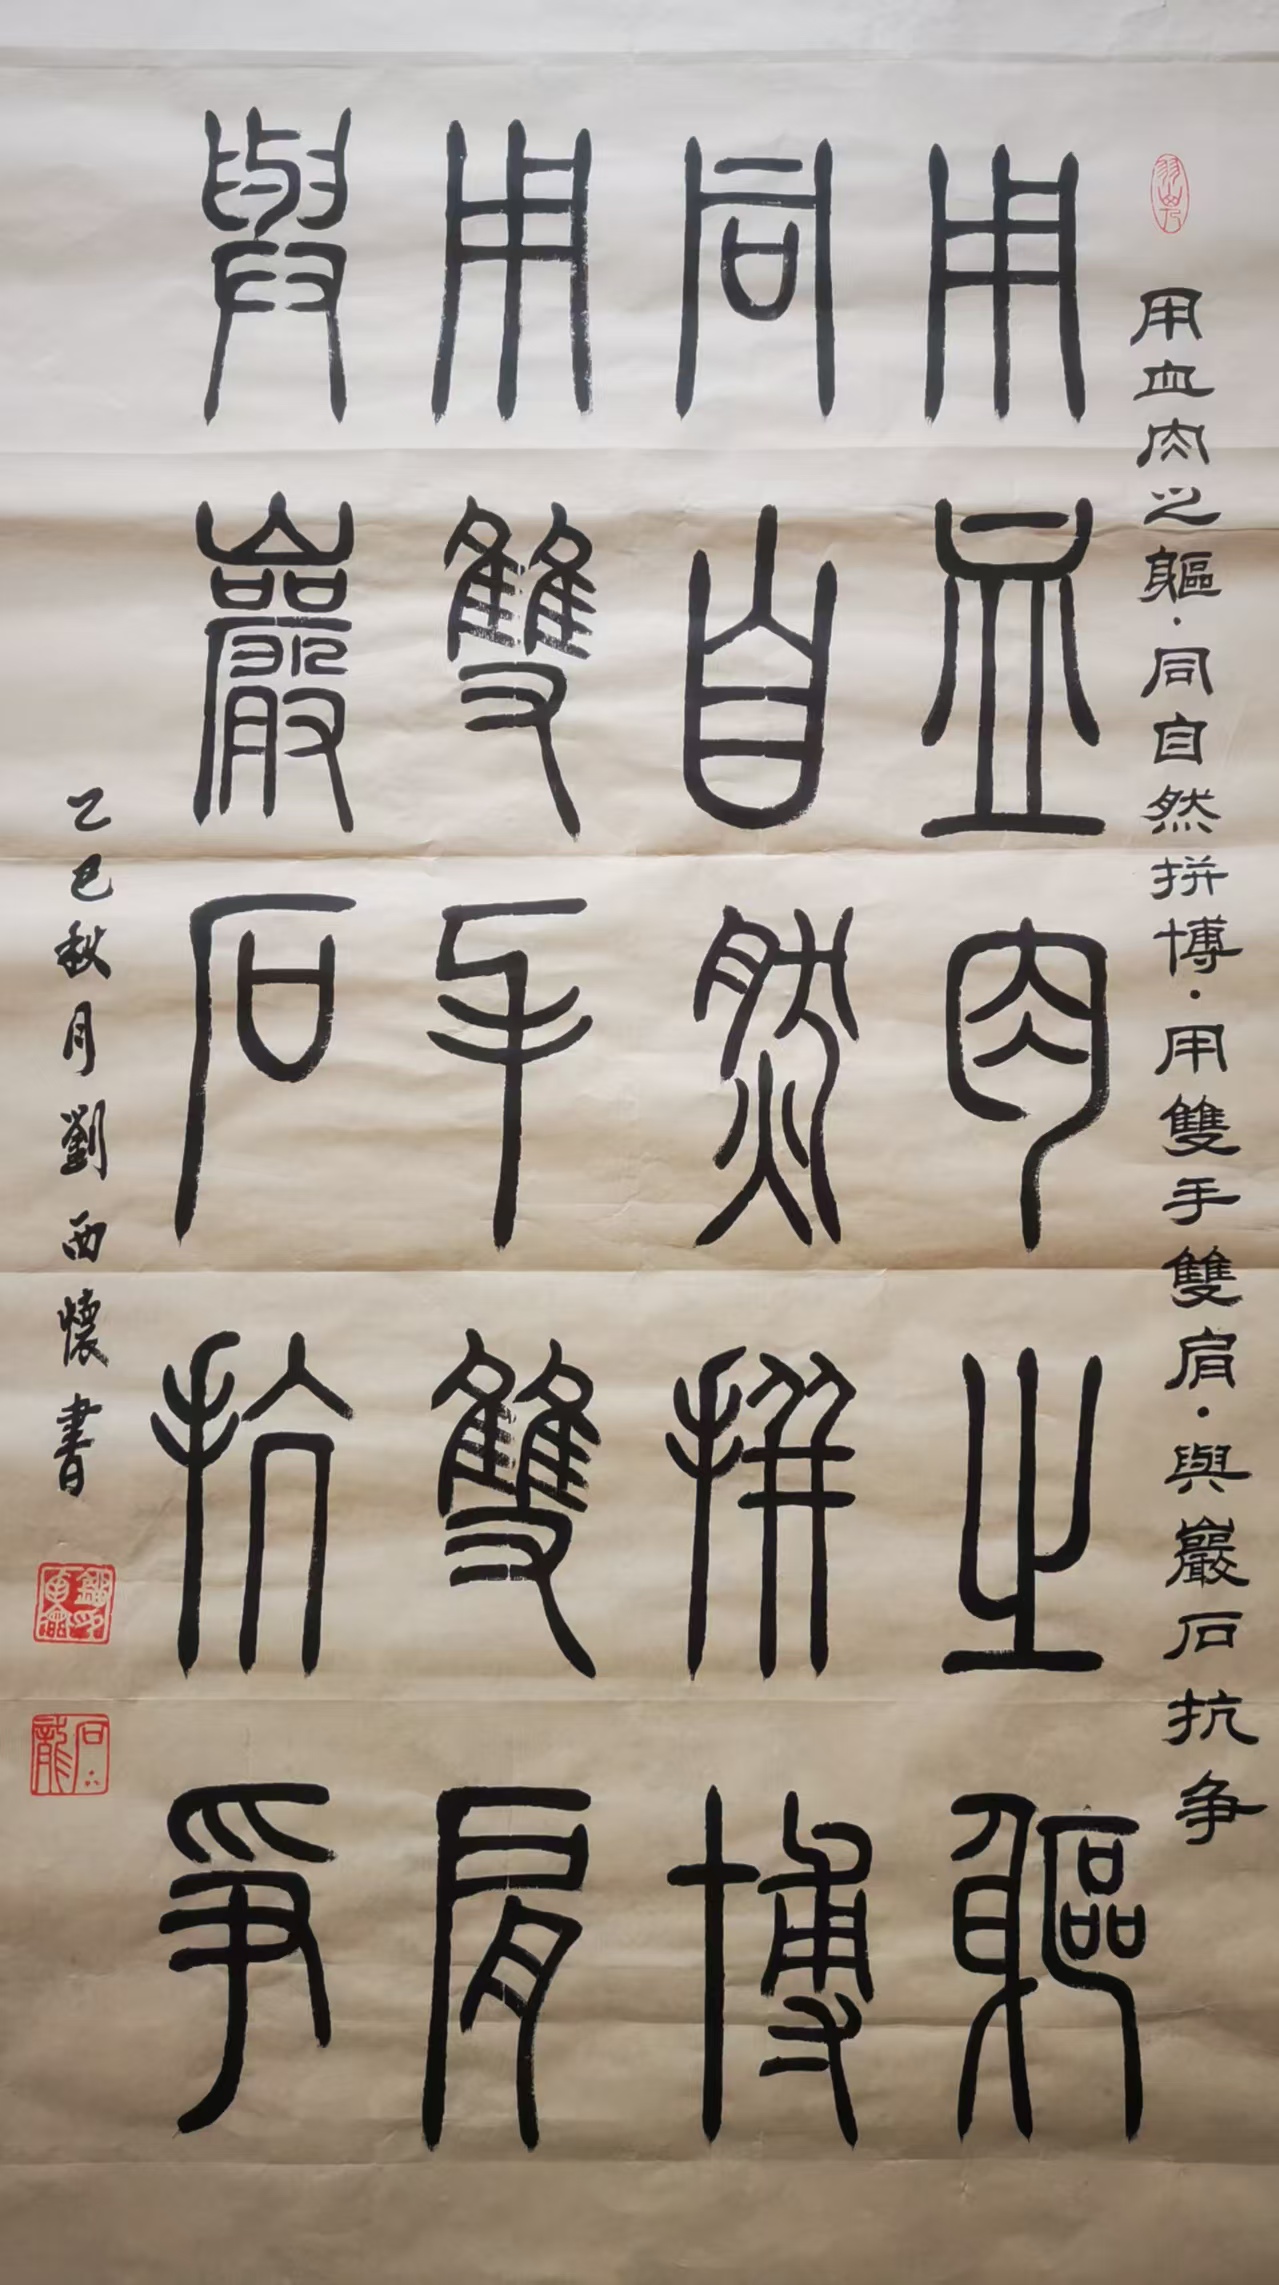 用血肉之軀·同自然拼博·用雙手雙肩·與巖石抗争
用血肉之軀
同自然拼博
用雙手雙肩
與巖石抗爭
乙巳秋月劉西懷書